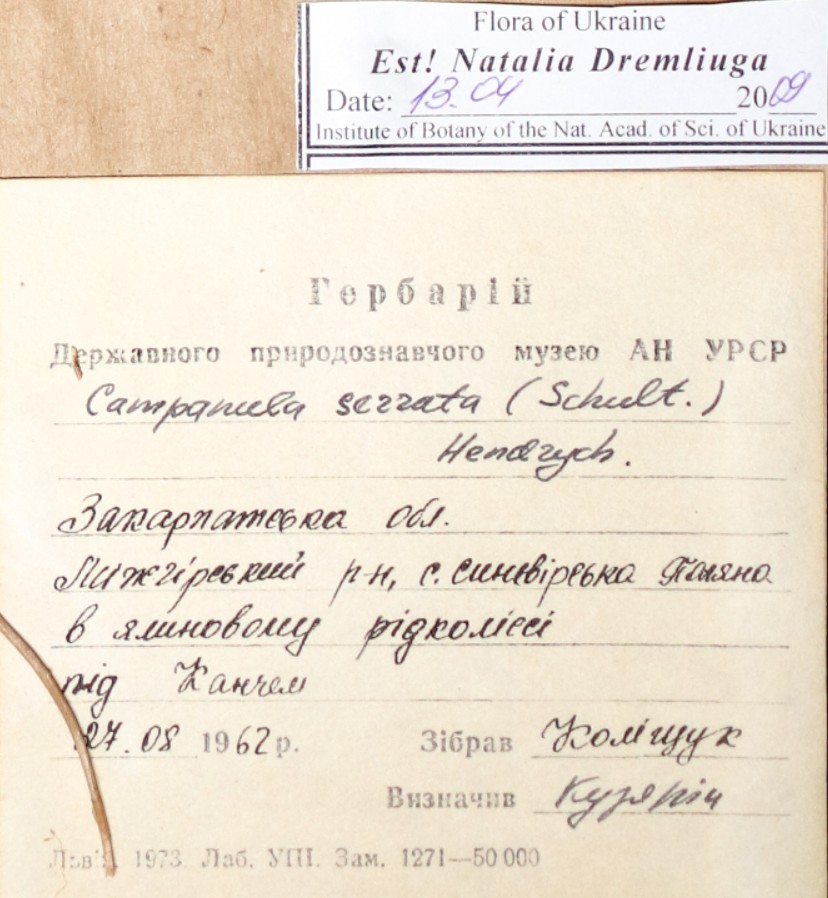 Flora of Ukraine
Est! Natalia Dremliuga
Date: 13.04 2009
Institute of Botany of the Nat. Acad. of Sci. of Ukraine
Гербарій
Державного природознавчого музею АН УРСР
Campanula serrata (Schult.)
Hendrych.
Закарпатська обл.
Міжгірський р-н, с. Синевірська Поляна
в ялиновому рідколіссі
під Канчем
27.08 1962 р. Зібрав Коліщук
Визначив Кузярін
Львів. 1973. Лаб. УПІ. Зам. 1271—50 000